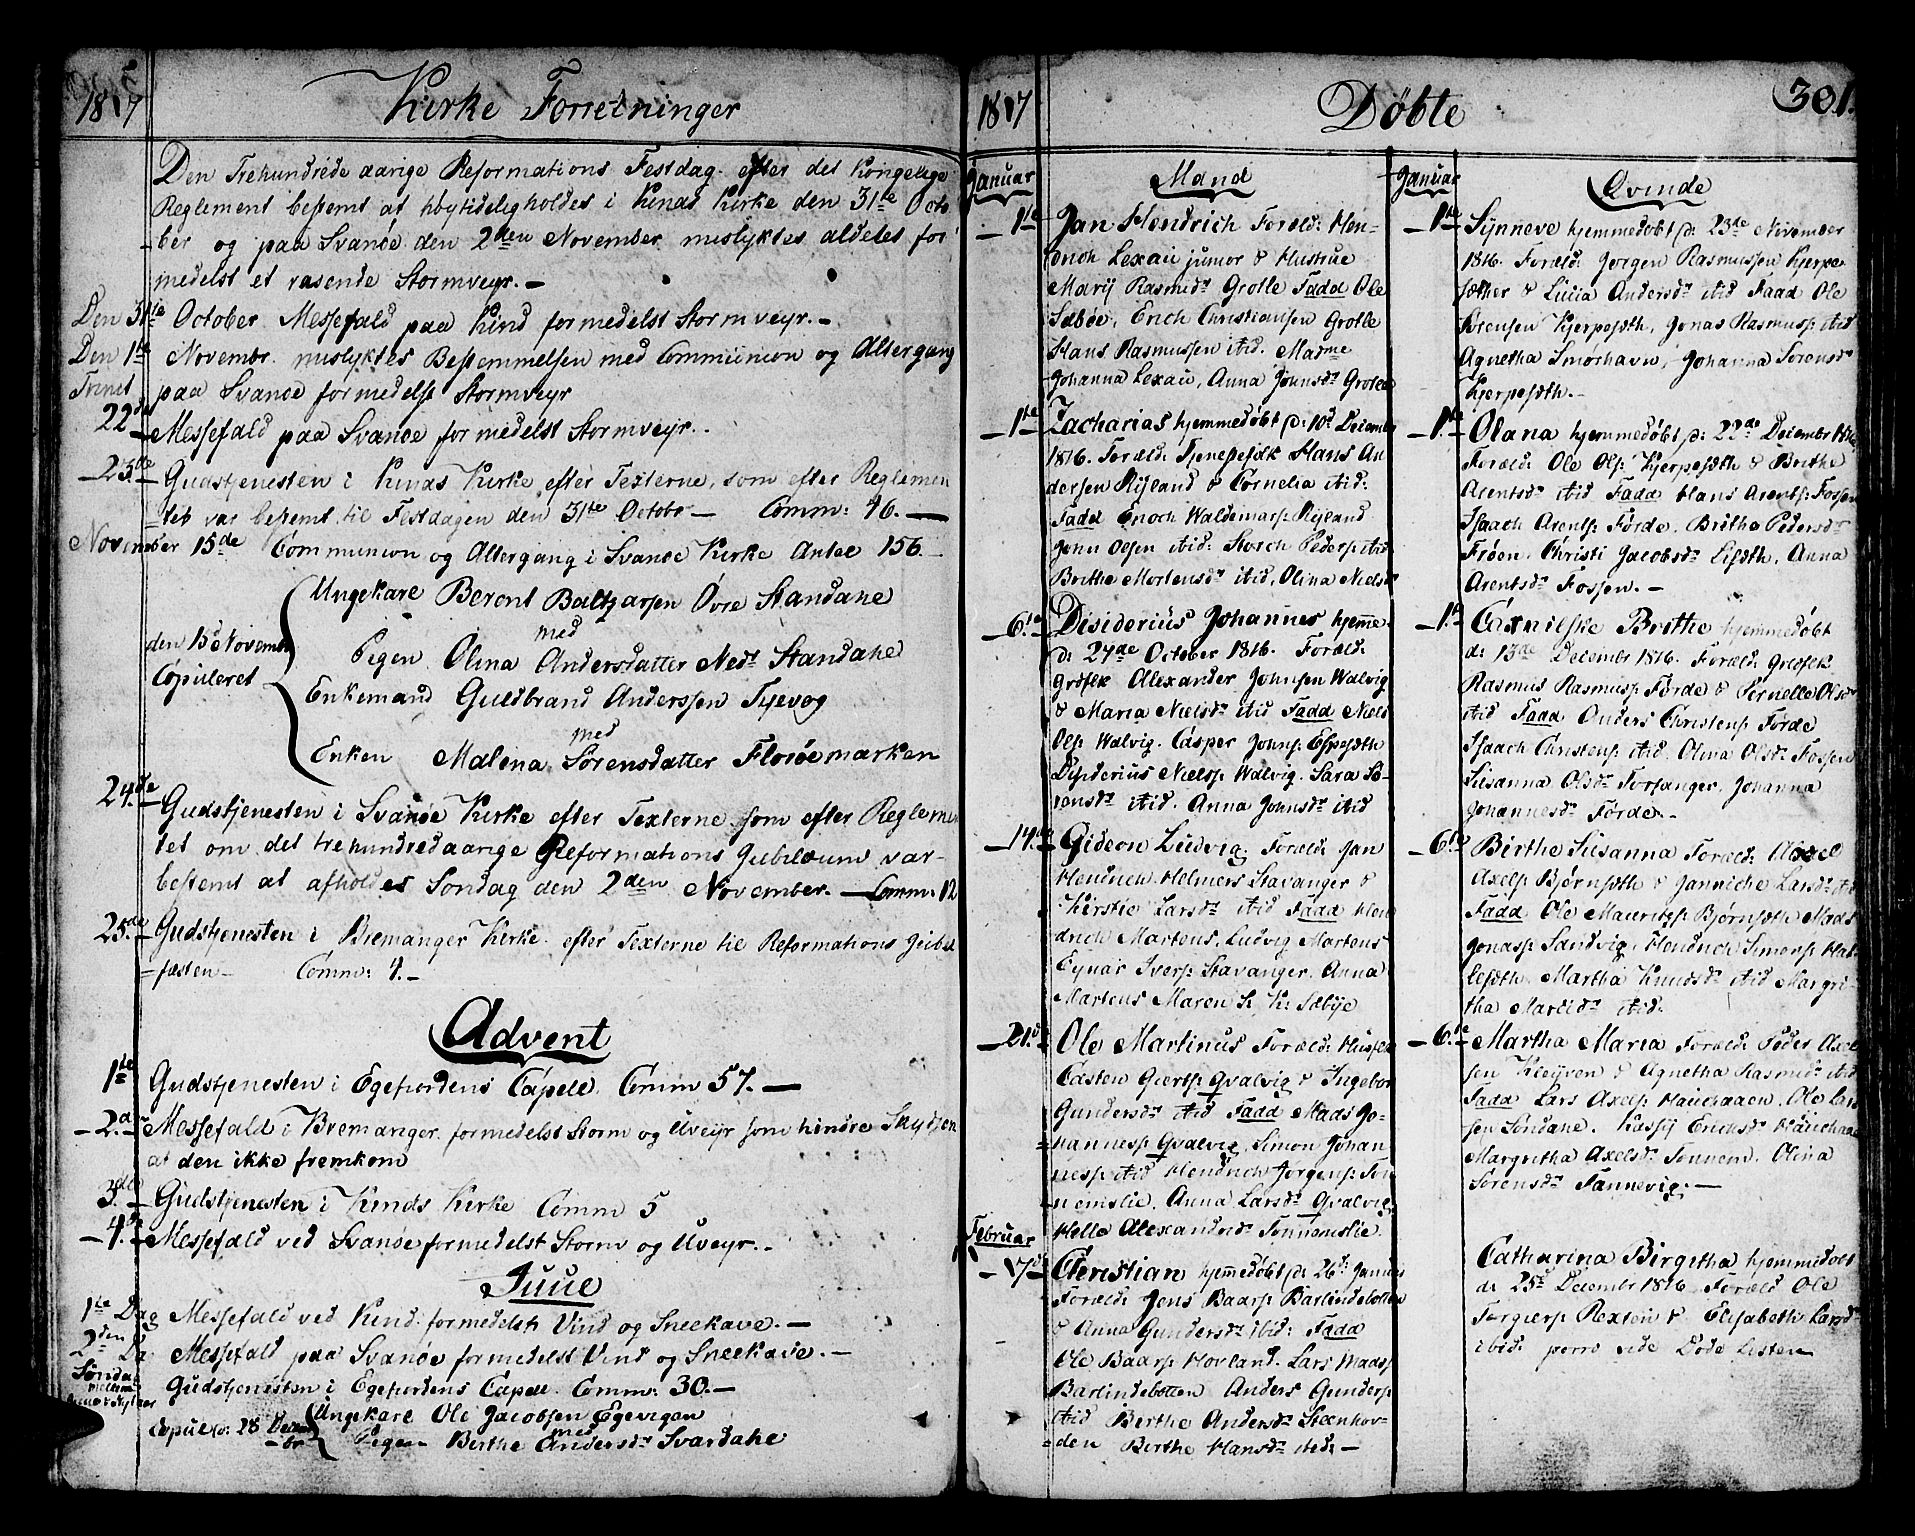 1817
Kirke Forretninger
Den Trehundrede aarige Reformations Festdag efter det Kongelige
Reglement bestemt at høytideligholdes i Kinds Kirke den 31te Octo-
ber og paa Svanøe den 2den November mislyktes aldeles for
medelst et rasende Stormveyr.
Den 31te October Messefald paa Kind formedelst Stormveyr.
Den 1te Novembr. mislyktes Bestemmelsen med Communion og Altergang
paa Svanøe formedelst Stormveyr
Trinit
22de Messefald paa Svanøe formedelst Stormveyr.
23de Gudstjenesten i Kinds Kirke efter Texterne, som efter Reglemen
tet var bestemt til Festdagen den 31te Octobr Comm: 46.
November 15de Communion og Altergang i Svanøe Kirke Antal 156
den 15d Novembr
Copuleret
Ungekarl Berent Baltzarsen Øvre Standahl
med
Pigen Olina Andersdatter Nedr Standahl
Enkemand Guldbrand Anderssen Tyevog
med
Enken Malena Sørensdatter Florøemarken
24de Gudstjenesten i Svanøe Kirke efter Texterne som efter Reglemen
tet om det trehundredaarige Reformations Jubilæum var
bestemt at afholdes Søndag den 2den November. Comm: 12
25de Gudstjenesten i Bremanger Kirke efter Texterne til Reformations Jubel
festen Comm: 4.
Advent
1te Gudstjenesten i Egefiordens Capell. Comm 57.
2d Messefald i Bremanger formedelst Storm og Uveyr som hindre Skydsen
at den ikke fremkom
3die Gudstjenesten i Kinds Kirke Comm 5
4de Messefald ved Svanøe formedelst Storm og Uveyr.
Juul
1te Dag Messefald ved Kind formedelst Vind og Sneekave.
2den Da Messefald paa Svanøe formedelst Vind og Sneekave.
Søndag
mellem
Gudstjenesten i Egefiordens Capell. Comm: 30.
Copul: d: 28 Decem
br
Ungekarl Ole Jacobsen Egevigen
med
Pigen Birthe Andersdr Svardahl
1817
Døbte
301.
Januar
Mand
1te Jan Hendrich Foræld: Hen-
drich Lexau junior & Hustrue
Marij Rasmidr Grotle Fadd Ole
Sæbøe, Erich Christiansen Grotle
Hans Rasmussen ibid. Madme
Johanna Lexau, Anna Johnsdr Grotle
1te Zacharias hjemmedøbt d: 10d Decembr
1816. Foræld: Hans An
dersen Ryland & Cornelia ibid:
Fadd Enoch Waldemars: Ryland
John Olsen ibid: Peders: ibid
Birthe Mortensdr ibid, Olina Nielsdr
6te Disiderius Johannes hjemme
d: 27de October 1816. Foræld:
Alexander Johnsen Walvig
& Maria Nielsdr ibid Fadd Niels
Ols: Walvig. Casper Johns:
Disiderius Niels: Walvig. Sara Sø-
rensdr ibid. Anna Johnsdr ibid
14de Gideon Ludvig. Foræld: Jan
Hendrich Helmers Stavanger &
Kirstie Larsdr ibid Fadd Hen
drich Martens. Ludvig Martens
Eynar Ivers: Stavanger. Anna
Martens Maren Sæbye
21d Ole Martinus Foræld:
Casten Gierts: Qvalvig & Ingebor
Gundersdr ibid Fadd Mads Jo-
hanness: Qvalvig. Simon Johan
nes: ibid Hendrich Jørgens: Tøn
nemslie. Anna Larsdr Qvalvig
Helle Alexandrdr Tønnemslie.
Februar
7d Christian hjemmedøbt d: 26d: Januar
Foræld: Jens Baars: Barlindebotten
& Anna Gundersdr ibid: Fadd
Ole Baars: Hovland. Lars Mads:
Barlindebotten Anders Gunders:
ibid Birthe Andersdr Steenhov-
den Birthe Hansdr ibid:
Januar
Qvinde
1te Synneve hjemmedøbt d: 23de November
1816. Foræld: Jørgen Rasmussen Kjerpe
sæther & Lucia Andersdr ibid Faad Ole
Sørensen Kjerpesdth, Jonas Rasmuss: ibid
Agnetha Smørhavn, Johanna Sørensdr
Kjerpesdth.
1te Olana hjemmedøbt d: 22de Decembr 1816
Foræld: Ole Ols: Kjerpesdth & Birthe
Arentsdr ibid Fadd Hans Arents: Fossen
Isaach Arents: Førde. Birthe Pedersdr
Frøen. Christi Jacobsdr Anna
Arentsdr Fossen.
1te Brithe hjemmedøbt
d: 13de Decembr 1816. Foræld:
Rasmus Rasmus: Førde & Pernelle Olsdr
ibid Fadd Anders Christens: Førde
Isaach Christens: ibid. Olina Olsdr Fossen
Susanna Olsdr Torsanger. Johanna
Johannesdr Førde.
6te Birthe Susanna Foræld: Axel
Axels: Bjørnsdth & Janniche Larsdr ibid
Fadd Ole Maurits: Bjørnsdth Mads
Jonas: Sandvig. Hendrich Simons: Hal-
lesdth. Martha Knudsdr ibid Margri-
tha ibid:
6te Martha Maria Foræld: Peder Axel
sen Kleyven & Agnetha Rasmidr ibid
Fadd Lars Axels: Ole Lar
sen Søndahl. Erichsdr
Margretha Axelsdr Tonnem. Olina
Sørensdr Fannevig.
Catharina Birgitha hjemmedøbt
d: 25d December 1816 Foræld: Ole
Torgiers: Rexten & Elisabeth Larsd
ibid: porro vide Døde Listen